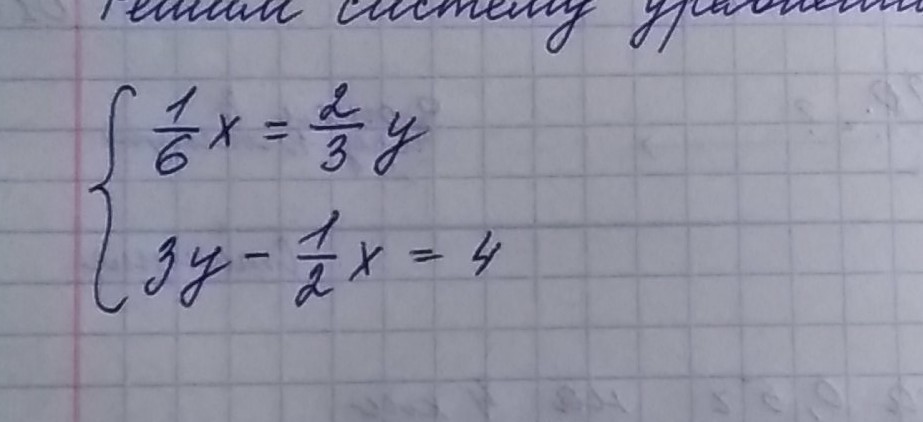 Решим систему уравнений
1/6 x = 2/3 y
3y - 1/2 x = 4